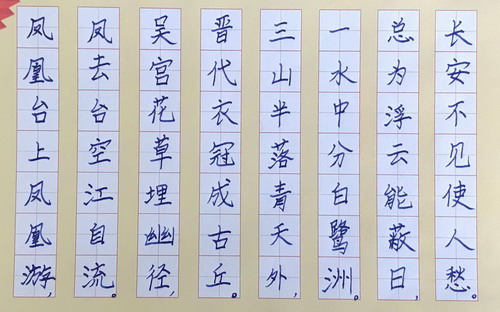 凤凰台上凤凰游,
凤去台空江自流。
吴宫花草埋幽径,
晋代衣冠成古丘。
三山半落青天外,
一水中分白鹭洲。
总为浮云能蔽日,
长安不见使人愁。